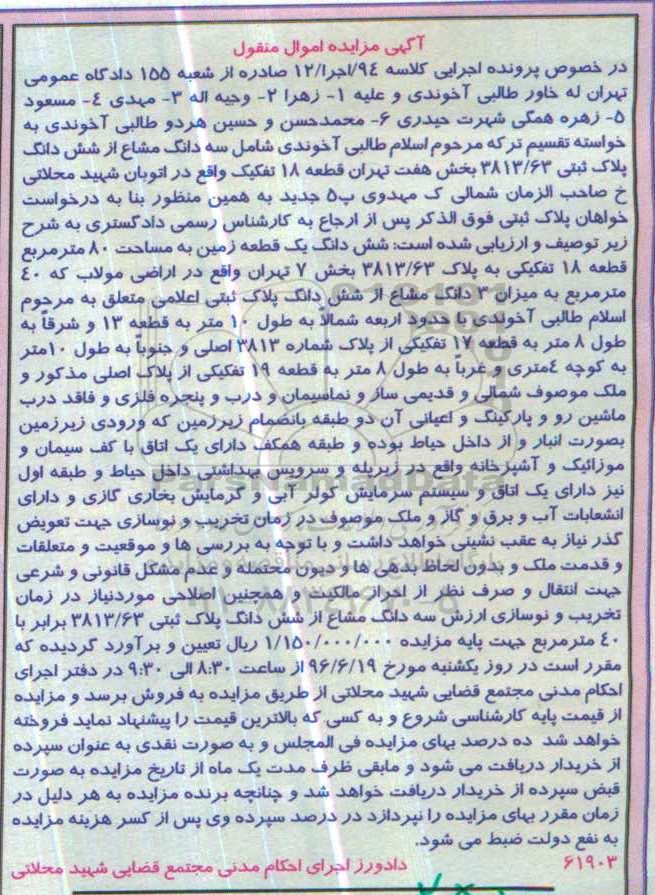 آگهی مزایده اموال منقول
در خصوص پرونده اجرایی کلاسه ۹٤/اجرا/۱۲ صادره از شعبه ۱۵۵ دادگاه عمومی
تهران له خاور طالبی آخوندی و علیه ۱- زهرا ۲- وجیه اله ۳- مهدی ٤- مسعود
۵- زهره همگی شهرت حیدری ۶- محمدحسن و حسین هردو طالبی آخوندی به
خواسته تقسیم ترکه مرحوم اسلام طالبی آخوندی شامل سه دانگ مشاع از شش دانگ
پلاک ثبتی ۳۸۱۳/۶۳ بخش هفت تهران قطعه ۱۸ تفکیک واقع در اتوبان شهید محلاتی
خ صاحب الزمان شمالی ک مهدوی پ۵ جدید به همین منظور بنا به درخواست
خواهان پلاک ثبتی فوق الذکر پس از ارجاع به کارشناس رسمی دادگستری به شرح
زیر توصیف و ارزیابی شده است: شش دانگ یک قطعه زمین به مساحت ۸۰ مترمربع
قطعه ۱۸ تفکیکی به پلاک ۳۸۱۳/۶۳ بخش ۷ تهران واقع در اراضی مولاب که ٤۰
مترمربع به میزان ۳ دانگ مشاع از شش دانگ پلاک ثبتی اعلامی متعلق به مرحوم
اسلام طالبی آخوندی با حدود اربعه شمالاً به طول ۱۰ متر به قطعه ۱۳ و شرقاً به
طول ۸ متر به قطعه ۱۷ تفکیکی از پلاک شماره ۳۸۱۳ اصلی و جنوباً به طول ۱۰متر
به کوچه ٤متری و غرباً به طول ۸ متر به قطعه ۱۹ تفکیکی از پلاک اصلی مذکور و
ملک موصوف شمالی و قدیمی ساز و نماسیمان و درب و پنجره فلزی و فاقد درب
ماشین رو و پارکینگ و اعیانی آن دو طبقه بانضمام زیرزمین که ورودی زیرزمین
بصورت انبار و از داخل حیاط بوده و طبقه همکف دارای یک اتاق با کف سیمان و
موزائیک و آشپزخانه واقع در زیرپله و سرویس بهداشتی داخل حیاط و طبقه اول
نیز دارای یک اتاق و سیستم سرمایش کولر آبی و گرمایش بخاری گازی و دارای
انشعابات آب و برق و گاز و ملک موصوف در زمان تخریب و نوسازی جهت تعویض
گذر نیاز به عقب نشینی خواهد داشت و با توجه به بررسی ها و موقعیت و متعلقات
و قدمت ملک و بدون لحاظ بدهی ها و دیون محتمله و عدم مشکل قانونی و شرعی
جهت انتقال و صرف نظر از احراز مالکیت و همچنین اصلاحی موردنیاز در زمان
تخریب و نوسازی ارزش سه دانگ مشاع از شش دانگ پلاک ثبتی ۳۸۱۳/۶۳ برابر با
٤۰ مترمربع جهت پایه مزایده ۱/۱۵۰/۰۰۰/۰۰۰ ریال تعیین و برآورد گردیده که
مقرر است در روز یکشنبه مورخ ۹۶/۶/۱۹ از ساعت ۸:۳۰ الی ۹:۳۰ در دفتر اجرای
احکام مدنی مجتمع قضایی شهید محلاتی از طریق مزایده به فروش برسد و مزایده
از قیمت پایه کارشناسی شروع و به کسی که بالاترین قیمت را پیشنهاد نماید فروخته
خواهد شد ده درصد بهای مزایده فی المجلس و به صورت نقدی به عنوان سپرده
از خریدار دریافت می شود و مابقی ظرف مدت یک ماه از تاریخ مزایده به صورت
قبض سپرده از خریدار دریافت خواهد شد و چنانچه برنده مزایده به هر دلیل در
زمان مقرر بهای مزایده را نپردازد در درصد سپرده وی پس از کسر هزینه مزایده
به نفع دولت ضبط می شود.
۶۱۹۰۳ دادورز اجرای احکام مدنی مجتمع قضایی شهید محلاتی
ParsNamadData